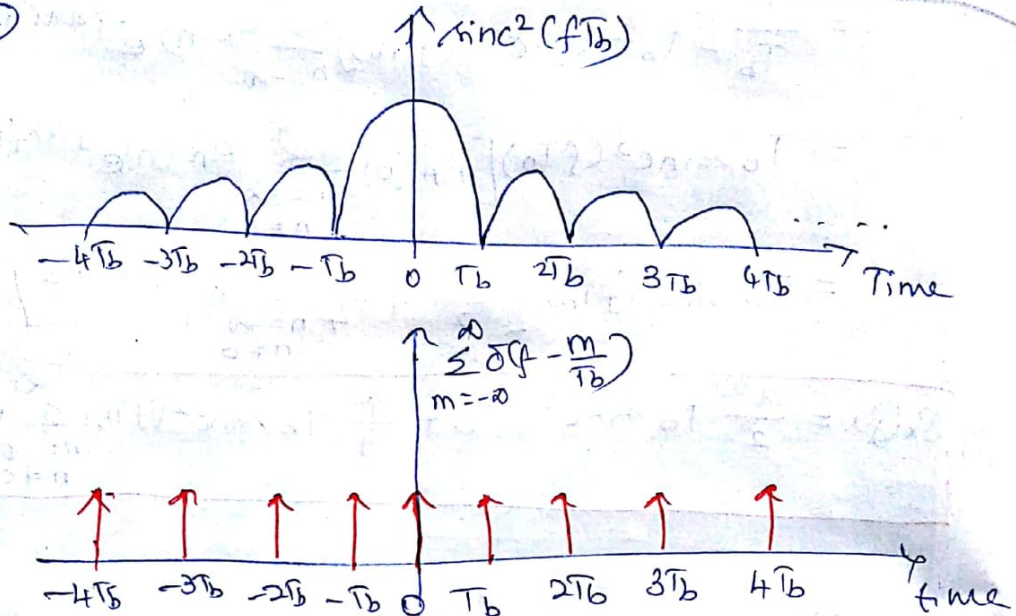 sinc² (fTb)
-4Tb -3Tb -2Tb -Tb 0 Tb 2Tb 3Tb 4Tb Time
∞
Σ δ(f - m/Tb)
m=-∞
-4Tb -3Tb -2Tb -Tb 0 Tb 2Tb 3Tb 4Tb time